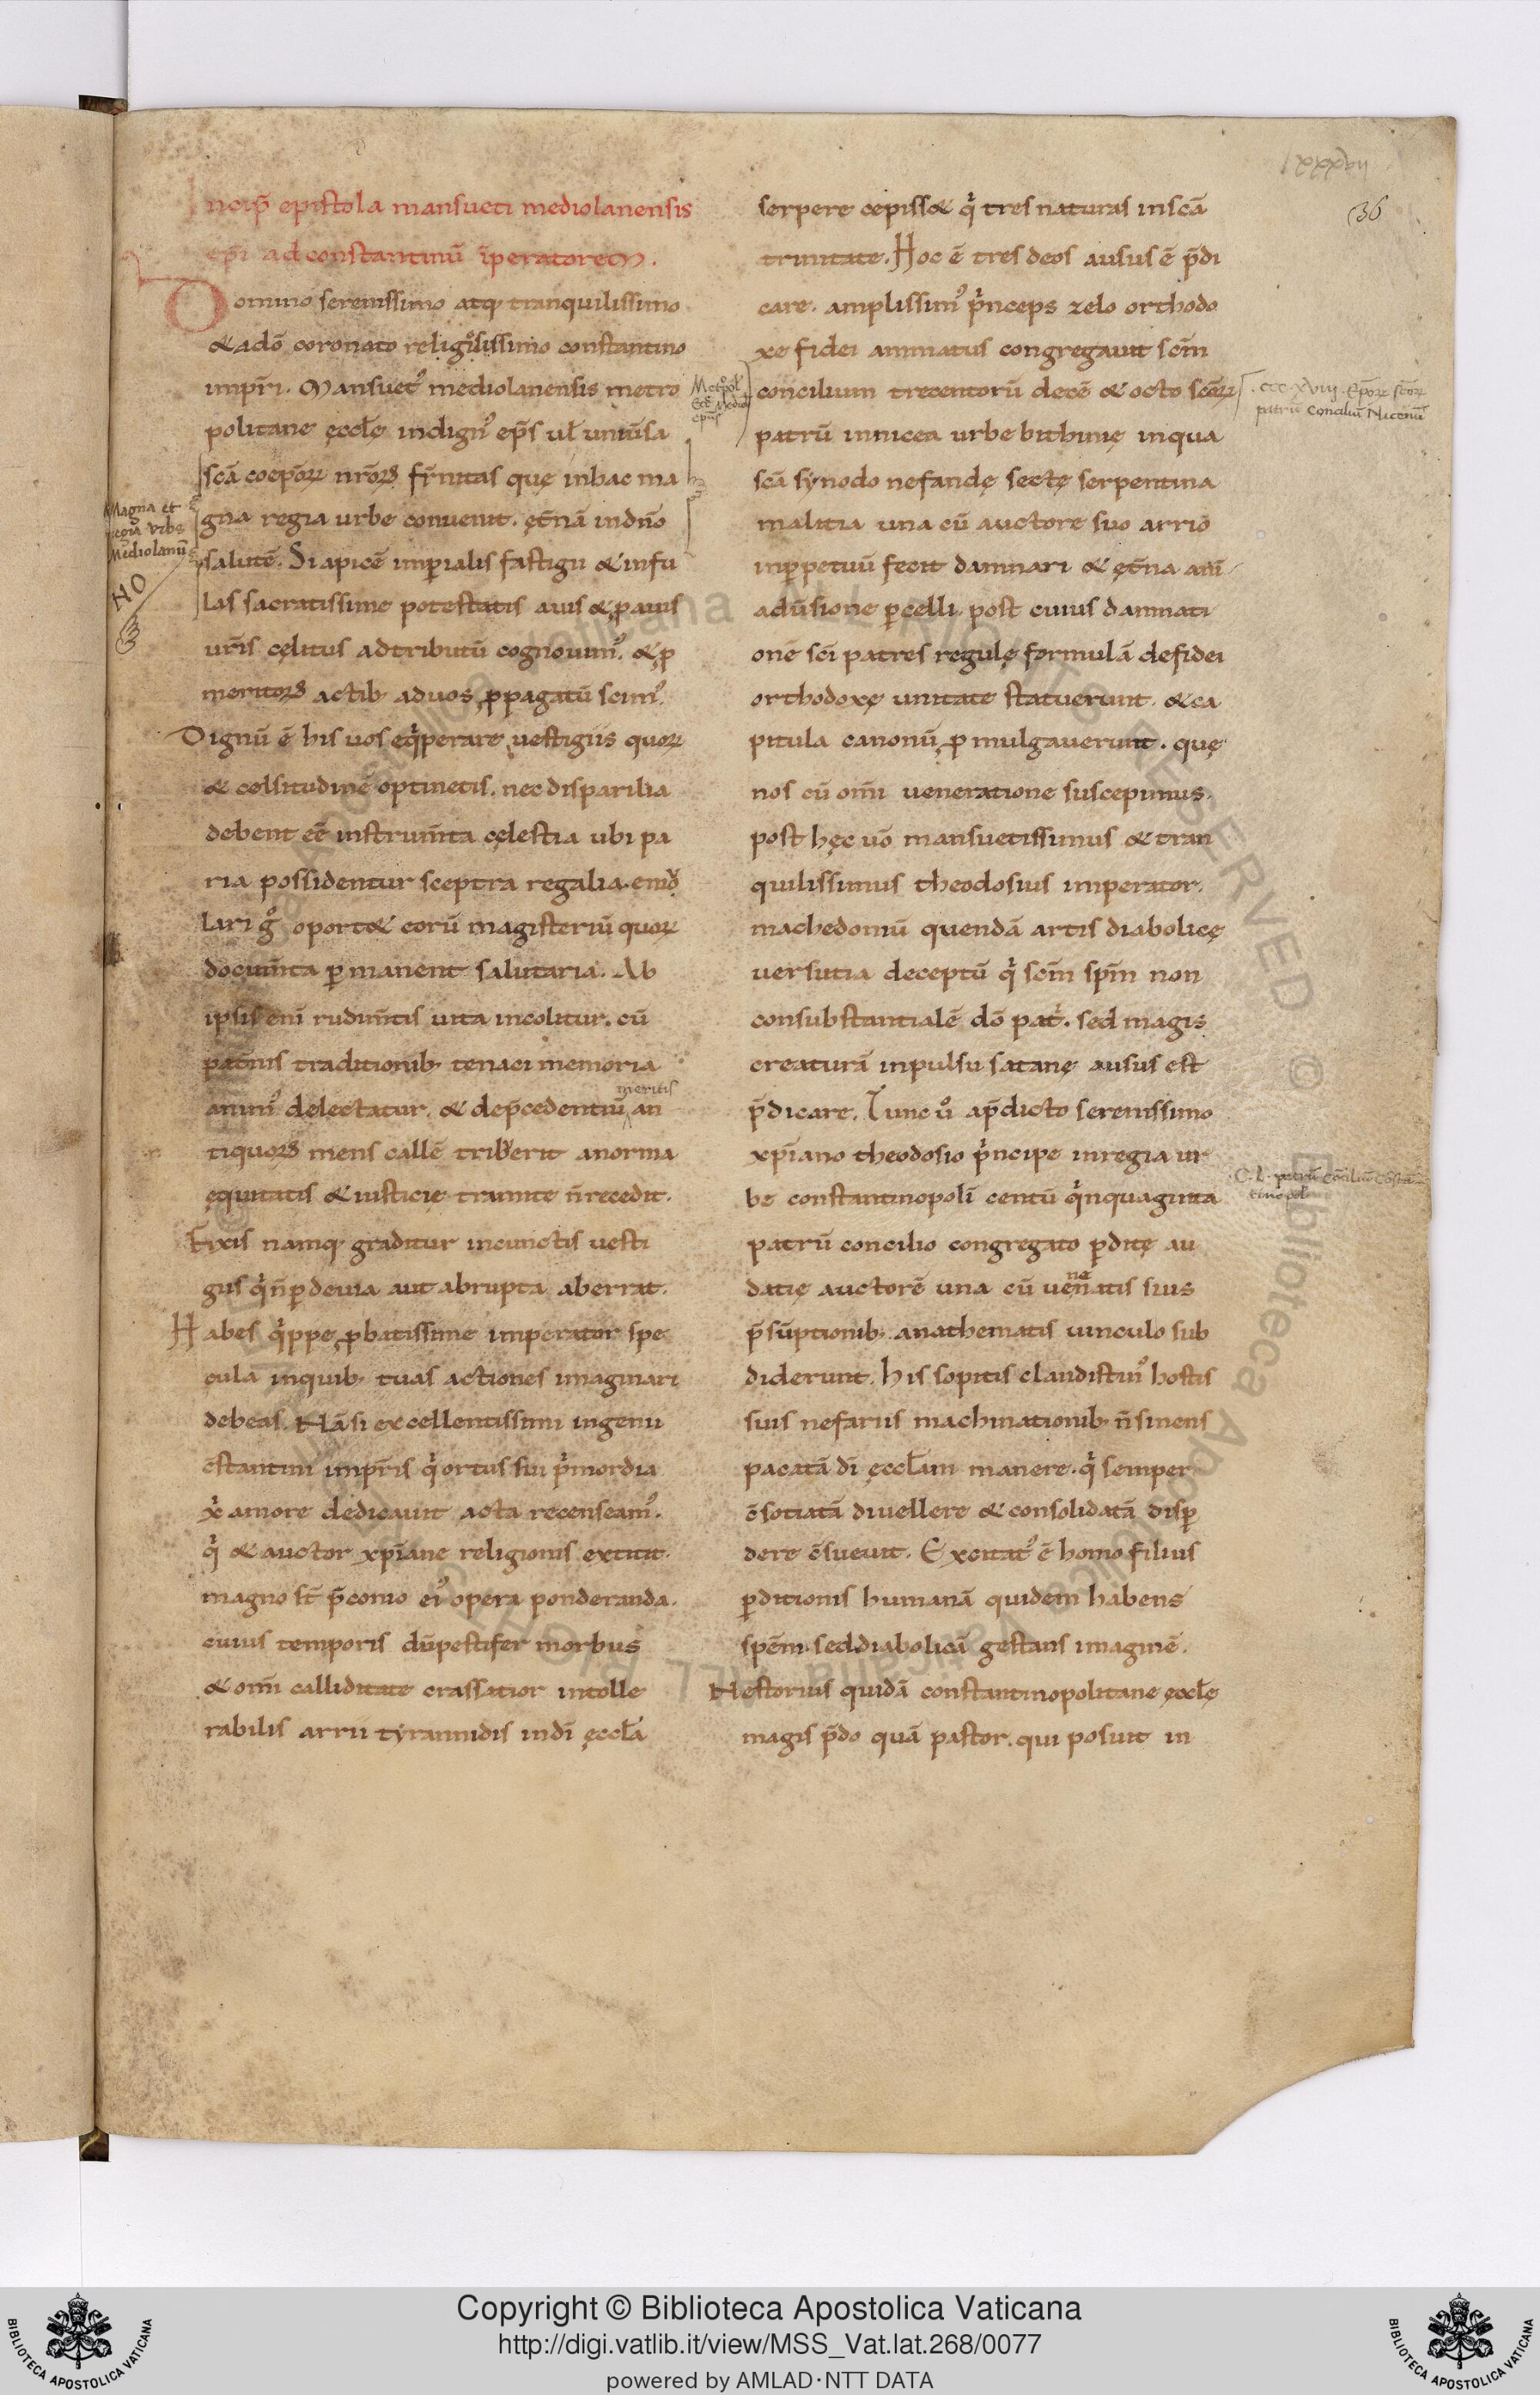 lxxxvii
36
Incip̄ epistola mansueti mediolanensis
ep̄i ad constantinū īperatorem.
Domino serenissimo atq; tranquilissimo
& a dō coronato religiosissimo constantino
imp̄ri. Mansuet᾽ mediolanensis metro
politane ęccl̄ę indign᾽ ep̄s ul̄ uniūsa
sc̄a coep̄oꝝ nr̄oꝝ fr̄nitas quę in hac ma
gna regia urbe conuenit. ęt̄nā in dn̄o
salutē. Si apicē imꝑialis fastigii & infu
las sacratissime potestatis auis & ꝓauis
ur̄is cęlitus adtributū cognouim᾽. & ꝓ
meritoꝝ actib; ad uos ꝓpagatū scim᾽.
Dignū ē his uos eq̇perare uestigiis quoꝝ
& celsitudinē optinetis. nec disparilia
debent eē instrum̄ta cęlestia ubi pa
ria possidentur sceptra regalia. emu
lari g̊ oport& eorū magisteriū quoꝝ
docum̄ta ꝑmanent salutaria. Ab
ipsis eni rudim̄tis uita incolitur. cū
pat̄nis traditionib; tenaci memoria
anim᾽ delectatur. & dep̄cedentiū meritis an
tiquoꝝ mens callē triuerit a norma
ęquitatis & iusticię tramite n̄ recedit.
Fixis namq; graditur in cunctis uesti
giis q̇ n̄ ꝑ deuia aut abrupta aberrat.
Habes q̇ppe ꝓbatissime imperator spe
cula in quib; tuas actiones imaginari
debeas. Nā si excellentissimi ingenii
c̄stantini imp̄ris q̇ ortus sui p̓mordia
xp̄i amore dedicauit acta recenseam᾽.
q̇ & auctor xp̄iane religionis extitit.
magno st̄ p̄conio ei᾽ opera ponderanda.
cuius temporis dū pestifer morbus
& om̄i calliditate crassatior intolle
rabilis arrii tyrannidis in dī ęccl̄a
serpere cepiss& q̇ tres naturas in sc̄a
trinitate. Hoc ē tres deos ausus ē p̄di
care. amplissim᾽ p̓nceps zelo orthodo
xe fidei animatus congregauit sc̄m
concilium trecentorū decē & octo sc̄oꝝ
patrū in nicea urbe bithinię in qua
sc̄a synodo nefandę sectę serpentina
malitia una cū auctore suo arrio
in ꝑpetuū fecit damnari & ęt̄na anī
adūsione ꝑcelli. post cuius damnati
onē sc̄i patres regulę formulā de fidei
orthodoxę unitate statuerunt. & ca
pitula canonū ꝓmulgauerunt. quę
nos cū om̄i ueneratione suscepimus.
post hęc uō mansuetissimus & tran
quilissimus theodosius imperator.
machedoniū quendā artis diabolicę
uersutia deceptū q̇ sc̄m sp̄m non
consubstantialē dō pat̄. sed magis
creaturā inpulsu satanę ausus est
p̄dicare. Tunc u᾽ a p̄dicto serenissimo
xp̄iano theodosio p̓ncipe in regia ur
be constantinopoli centū q̇nquaginta
patrū concilio congregato ꝑditę au
datię auctorē una cū uenenatis suis
p̄sūptionib; anathematis uinculo sub
diderunt. His sopitis clandistin᾽ hostis
suis nefariis machinationib; n̄ sinens
pacatā dī ęccl̄am manere. q̇ semper
c̄sotiatā diuellere & consolidatā disꝑ
dere c̄sueuit. Excitat᾽ ē homo filius
ꝑditionis humanā quidem habens
spēm. sed diabolicā gestans imaginē.
Nestorius quidā constantinopolitane ęccl̄ę
magis p̄do quā pastor. qui posuit in
Metropol̄
Eccl̄ Mediol̄
ep̄us
Magna et
regia Vrbs
Mediolanū
NO
CCC.XVIII. Ep̄oꝝ sc̄oꝝ
patrū Conciliū Nicenū
C.L. patrū Conciliū Cōstan
tinopol̄
Copyright © Biblioteca Apostolica Vaticana
http://digi.vatlib.it/view/MSS_Vat.lat.268/0077
powered by AMLAD·NTT DATA
BIBLIOTECA APOSTOLICA VATICANA
BIBLIOTECA APOSTOLICA VATICANA